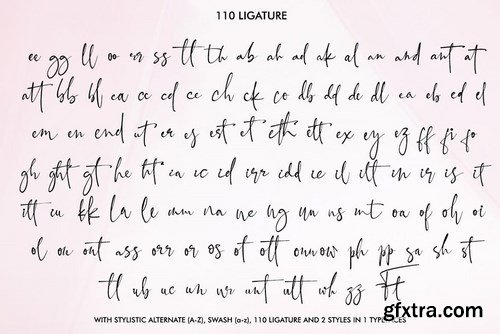 110 LIGATURE
ee gg ll oo rr ss tt th ab ah ad ak al an and ant at
att bb bl ca cc cd ce ch ck co db dd de dl ea eb ed el
em en end er es est et eth ett ex ey ez ff fi fo
gh ght gt he ht ia ic id irr idd ie il ilt in ir is it
itt iu kk la le mm na ne ng nn ns nt oa of oh oi
ol on ont ass orr or os ot ott ouuow ph pp sa sh st
tt ub uc un ur unt utt wh zz Ft
WITH STYLISTIC ALTERNATE (A-Z), SWASH (a-z), 110 LIGATURE AND 2 STYLES IN 1 TYPEFACES
gfxtra.com